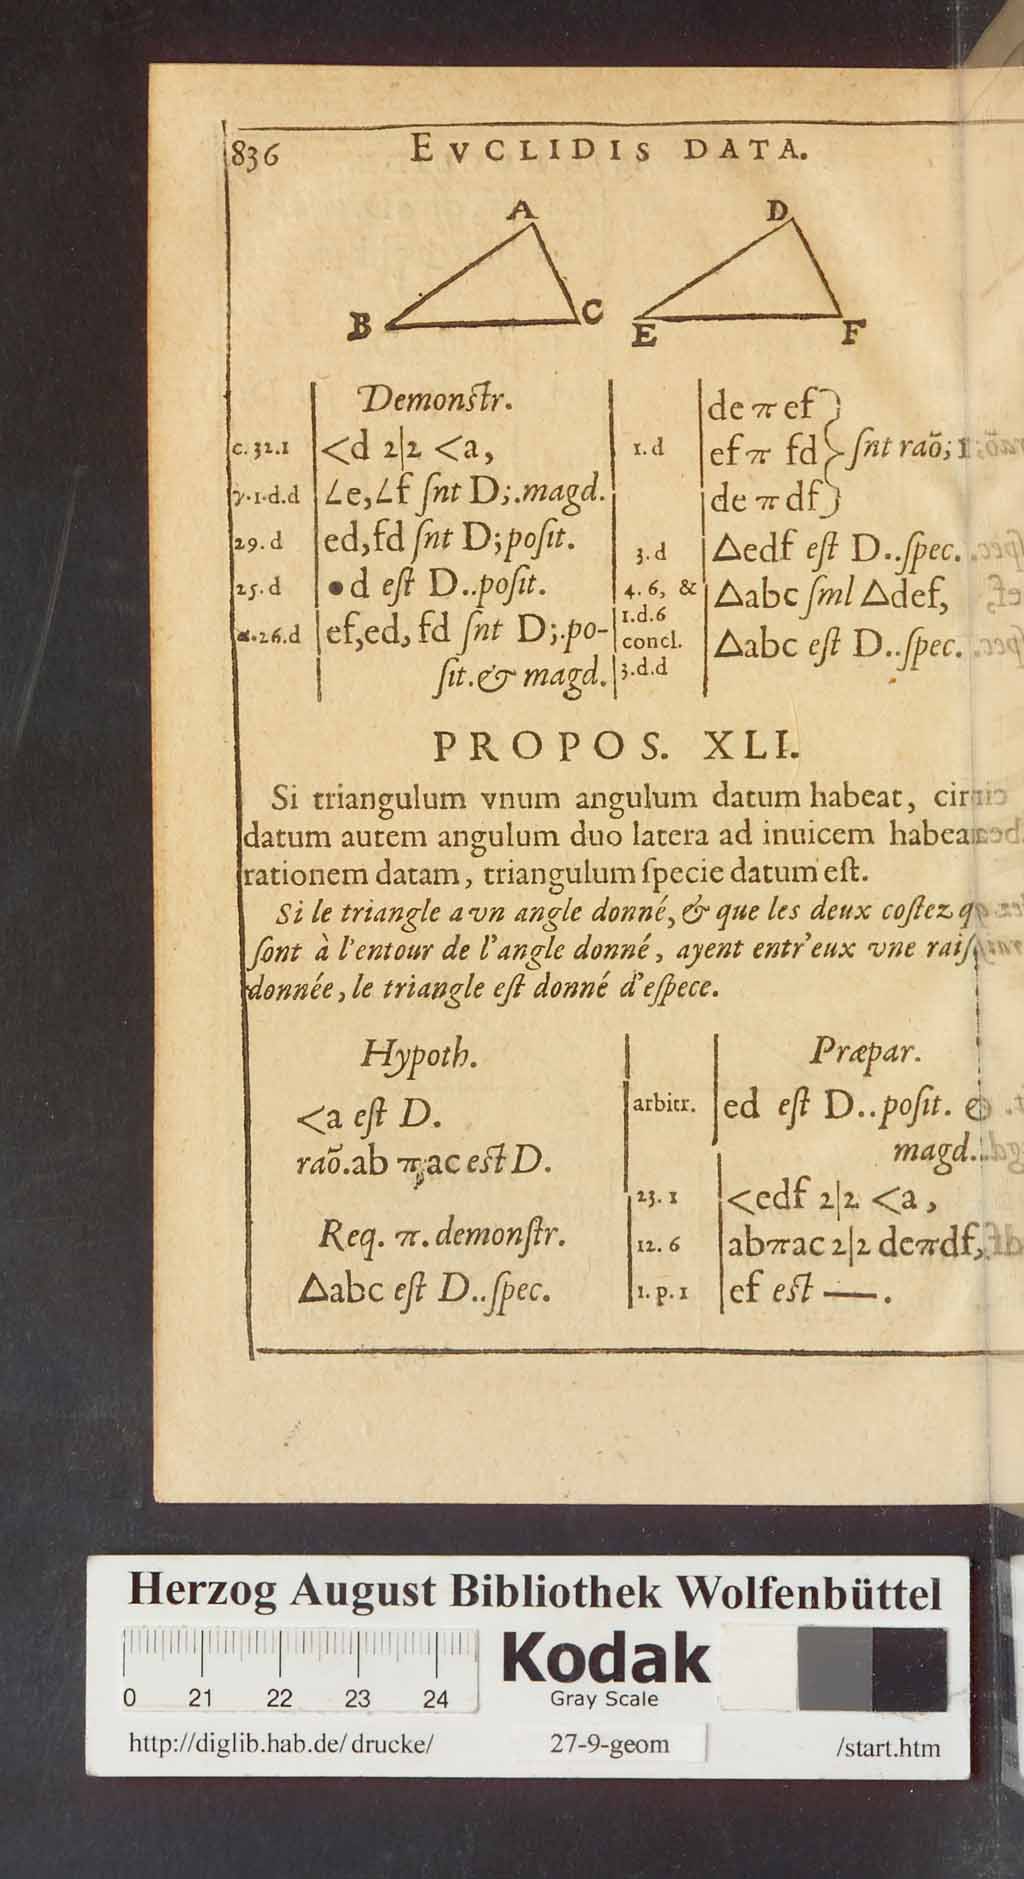 836 EVCLIDIS DATA.
A D
B C E F
Demonſtr.
c. 32.1 <d 2|2 <a,
γ.1.d.d ∠e,∠f ſnt D;.magd.
29. d ed,fd ſnt D;poſit.
25. d •d eſt D..poſit.
α.26.d ef,ed, fd ſnt D;.po-
ſit.& magd.
de π ef}
1. d ef π fd} ſnt raõ;
de π df}
3. d △edf eſt D..ſpec.
4. 6, & △abc ſml △def,
1.d.6
concl. △abc eſt D..ſpec.
3.d.d
PROPOS. XLI.
Si triangulum vnum angulum datum habeat,
datum autem angulum duo latera ad inuicem
rationem datam, triangulum ſpecie datum eſt.
Si le triangle a vn angle donné, & que les deux coſtez
ſont à l'entour de l'angle donné, ayent entr'eux vne
donnée, le triangle eſt donné d'eſpece.
Hypoth.
<a eſt D.
raõ.ab π ac eſt D.
Req. π. demonſtr.
△abc eſt D..ſpec.
Præpar.
arbitr. ed eſt D..poſit.
magd.
23. 1 <edf 2|2 <a,
12. 6 abπac 2|2 deπdf,
1. p. 1 ef eſt —.
Herzog August Bibliothek Wolfenbüttel
0 21 22 23 24
Kodak
Gray Scale
http://diglib.hab.de/drucke/ 27-9-geom /start.htm